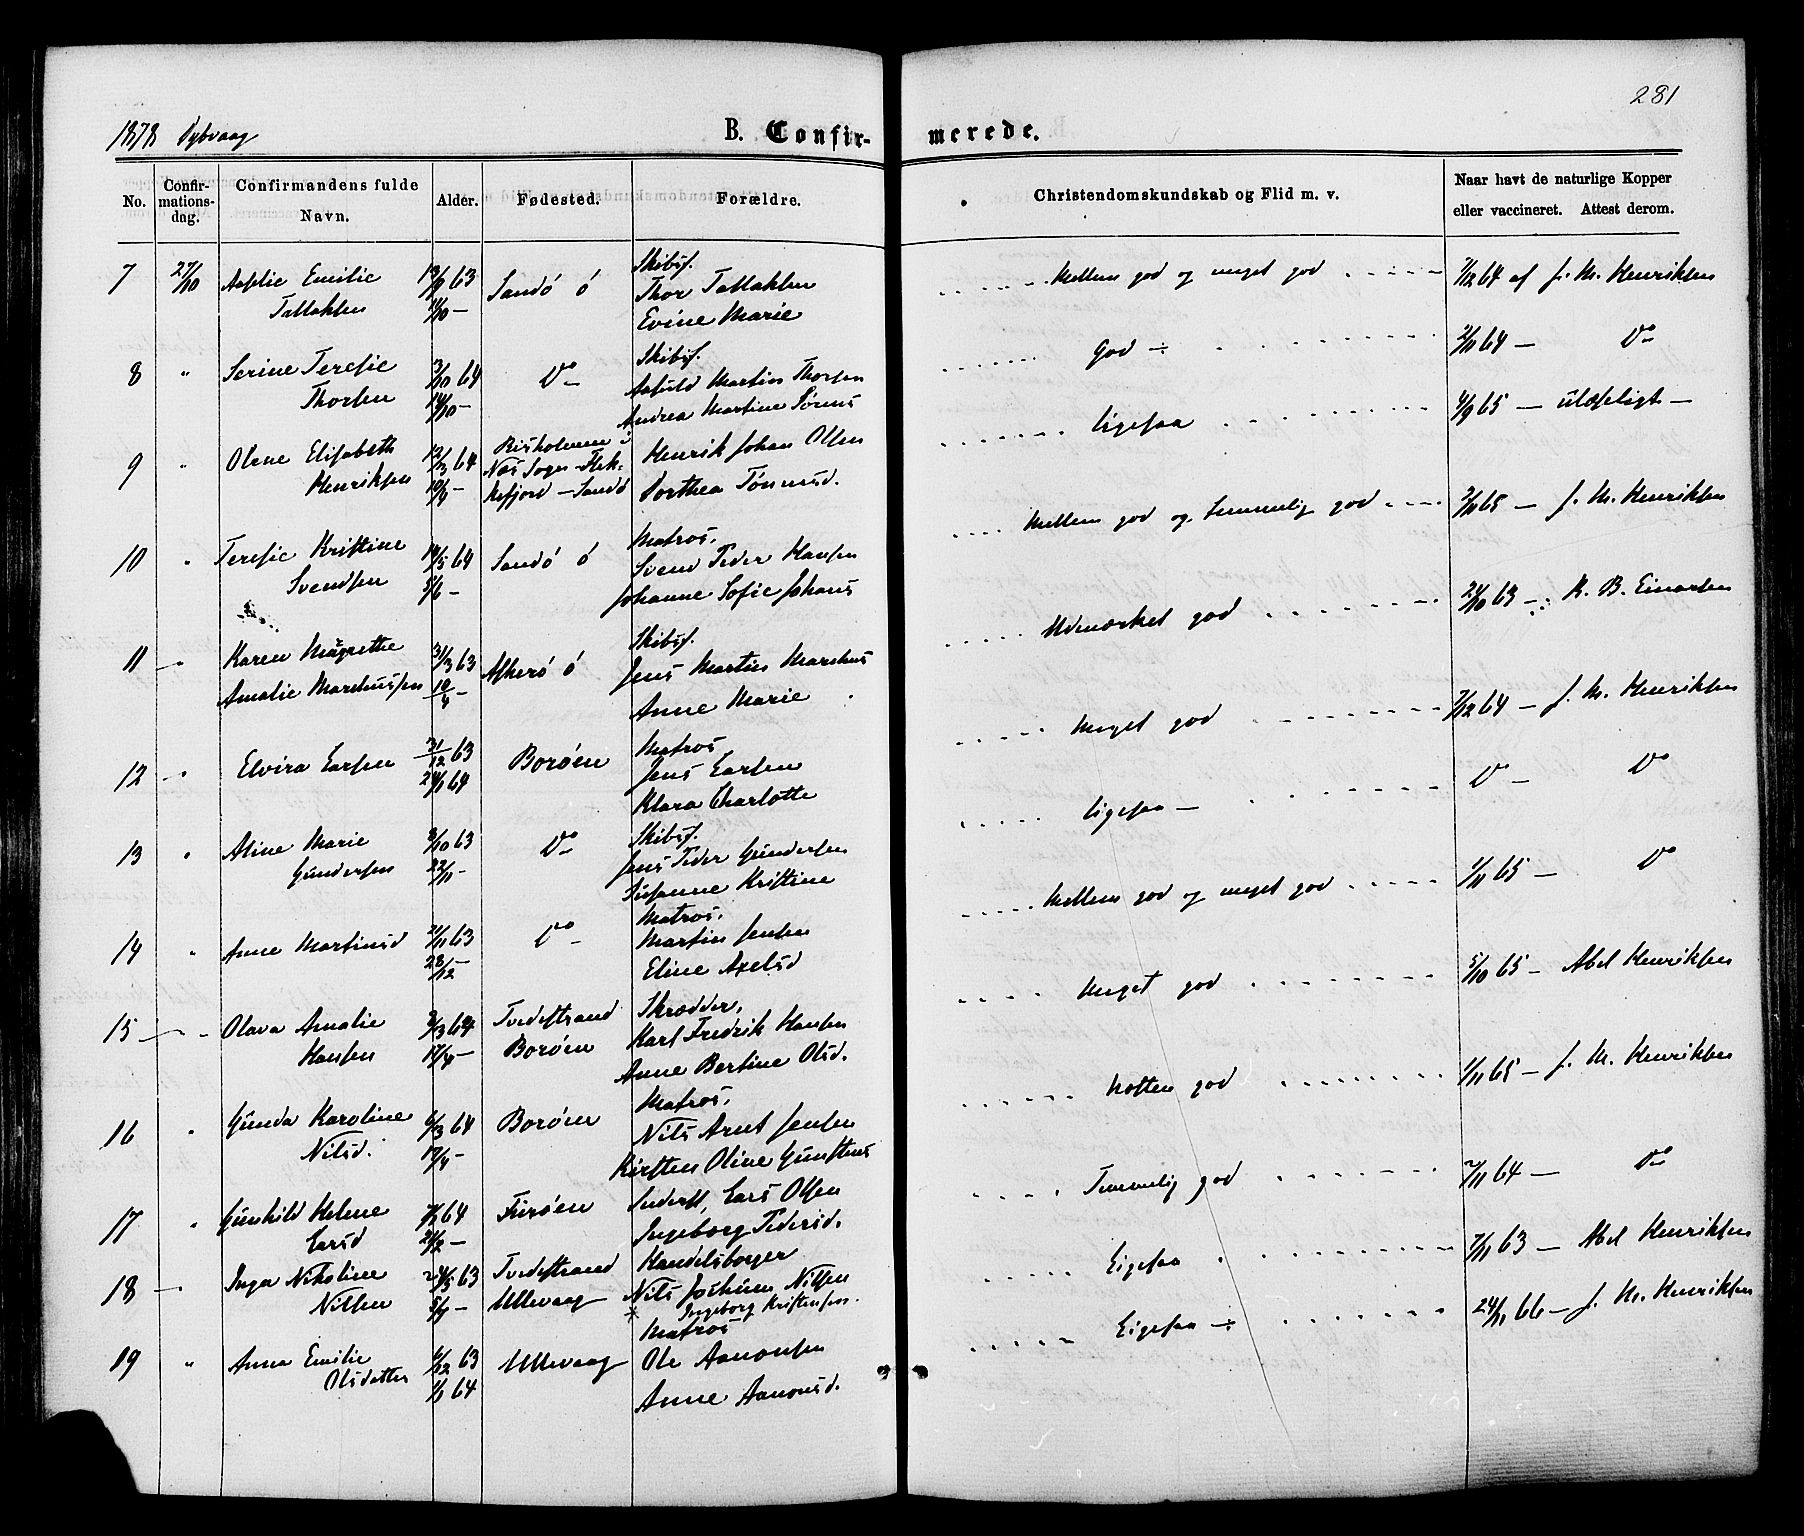 281
1878 Dybvaag
B. Confir- merede.
No. Confir-mations-dag. Confirmandens fulde Navn. Alder. Fødested. Forældre. Christendomskundskab og Flid m. v. Naar havt de naturlige Kopper eller vaccineret. Attest derom.
7 27/10 Aslie Emilie Sandö ö Skibsf. Mellem god og meget god 7/12 64 af J. M. Henriksen
Tallaksen 11/10 — Thor Tallaksen
Evine Marie
8 " Serine Teresie 3/10 64 Do Skibsf. God ÷ 2/11 64 — Do
Thorsen 14/10 — Martin Thorsen
Andrea Martine Sörens
9 " Olene Elisabeth 12/3 64 Risholmen i Henrik Johan Olsen Ligesaa 4/9 65 — ulæseligt —
Henriksen 10/4 — Næs Sogn Flek- Dorthea Tönnesd.
kefjord — Sandö
10 " Teresie Kristine 14/5 64 Sandö ö Matros. Mellem god og temmelig god 2/11 65 — J. M. Henriksen
Svendsen 5/6 — Svend Peder Hansen
Johanne Sofie Johans
11 " Karen Magrethe 31/3 63 Askerö ö Skibsf. Udmærket god 21/10 63 — K. B. Einersen
Amalie Marchussen 10/4 — Jens Martin Marchus
Anne Marie
12 " Elvira Larsen 31/12 63 Boröen Matros Meget god 7/12 64 — J. M. Henriksen
24/1 64 Jens Larsen
Klara Charlotte
13 " Aline Marie 3/10 63 Do Skibsf. Ligesaa — Do — Do
Gundersen 22/11 — Jens Peder Gundersen
Susanne Kristine
14 " Anne Martinsd 21/11 63 Do Matros. Mellem god og meget god 1/11 65 — Do
28/12 — Martin Jensen
Eline Axelsd
15 " Olava Amalie 2/3 64 Tvedestrand Skrædder, Meget god 5/10 65 — Abel Henriksen
Hansen 17/4 — Boröen Karl Fredrik Hansen
Anne Bertine Olsd.
16 " Gunda Karoline 6/3 64 Boröen Matros. Notten god 1/11 65 — J. M. Henriksen
Nilsd. 17/4 — Nils Arnt Jensen
Kirsten Oline Gunstens
17 " Gunhild Helene 7/1 64 Furöen Inderst, Lars Olsen Temmelig god 2/11 64 — Do
Larsd 21/2 — Ingeborg Pedersd.
18 " Inga Nikoline 24/5 63 Tvedestrand Handelsborger Ligesaa 7/11 63 — Abel Henriksen
Nilsen 5/7 — Ullevaag Nils Jochum Nilsen
* Ingeborg Kristensen.
19 " Anna Emilie 6/12 63 Ullevaag Matros Ligesaa ÷ 24/11 66 — J. M. Henriksen
Olsdatter 1/1 64 Ole Aanonsen
Anne Aanonsd.